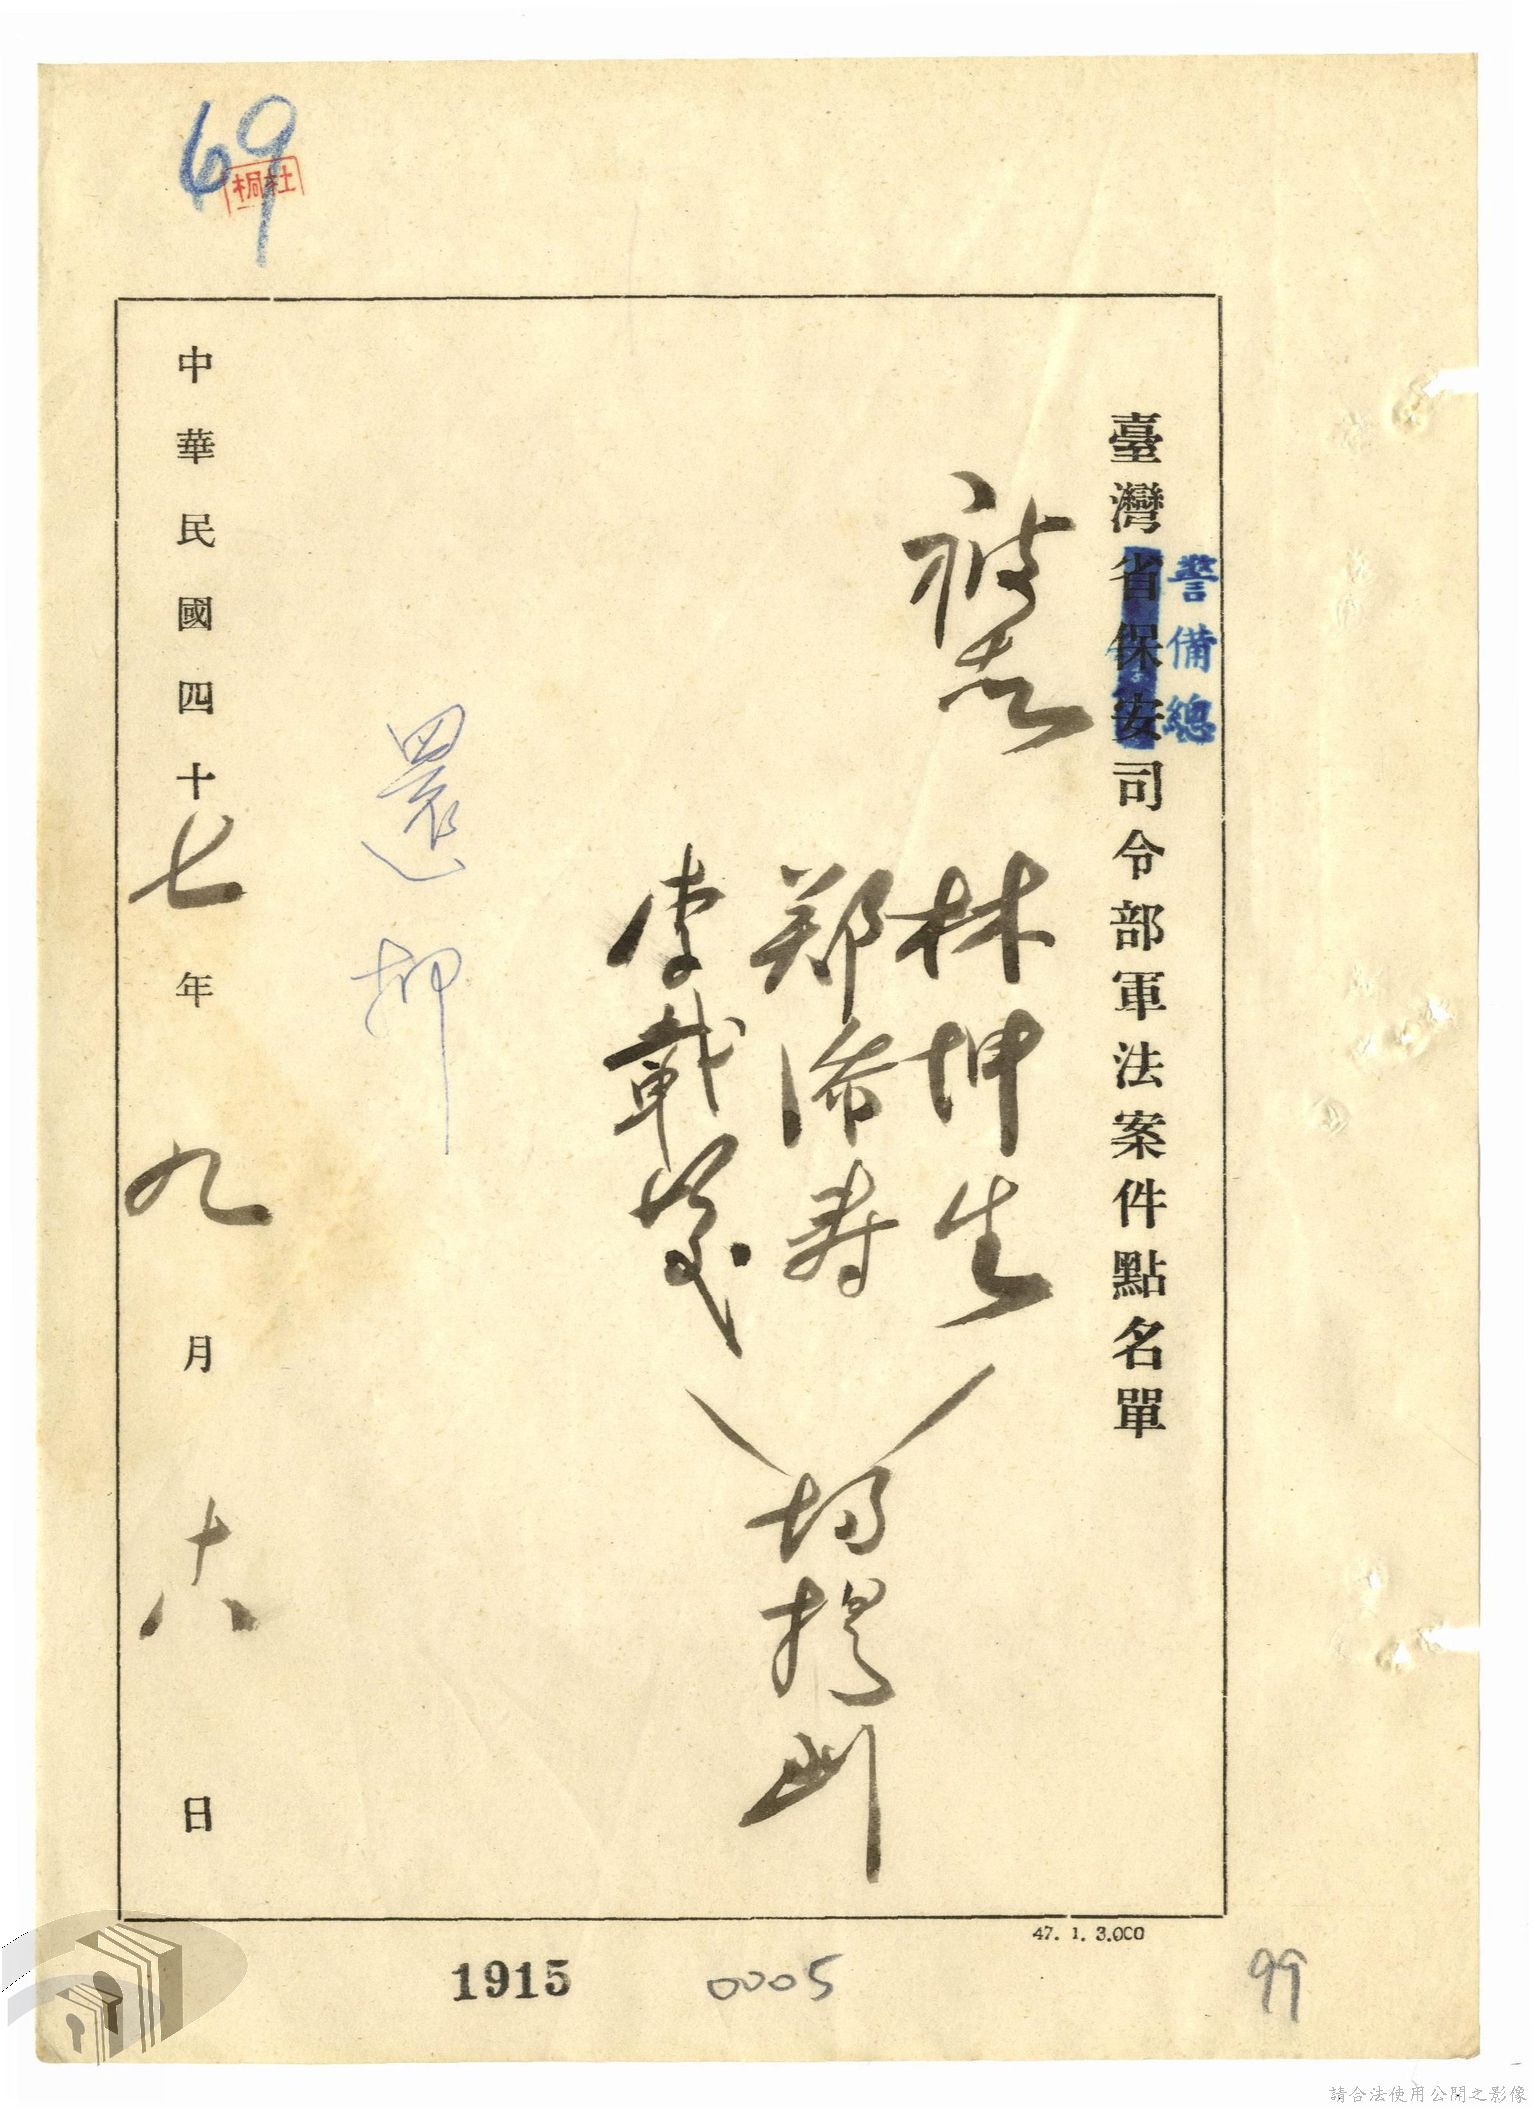 69
杜桐
臺灣省保安司令部軍法案件點名單
警備總
被告
林坤生
郑添寿
李載
均提到
還押
中華民國四十七年九月十八日
47. 1. 3.000
1915
0005
99
請合法使用公開之影像